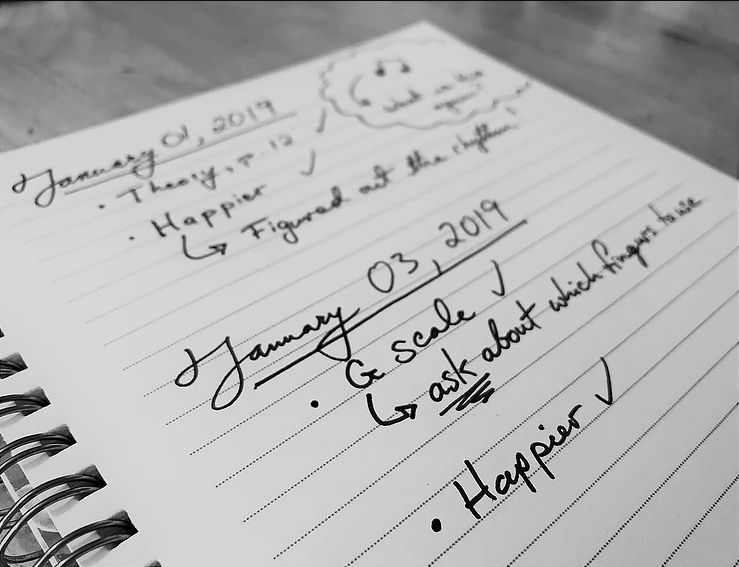 January 01, 2019
• Theory, p. 12 ✓
what are the
• Happier ✓
↳ Figured out the rhythm!
January 03, 2019
• G scale ✓
↳ ask about which fingers to use
• Happier ✓